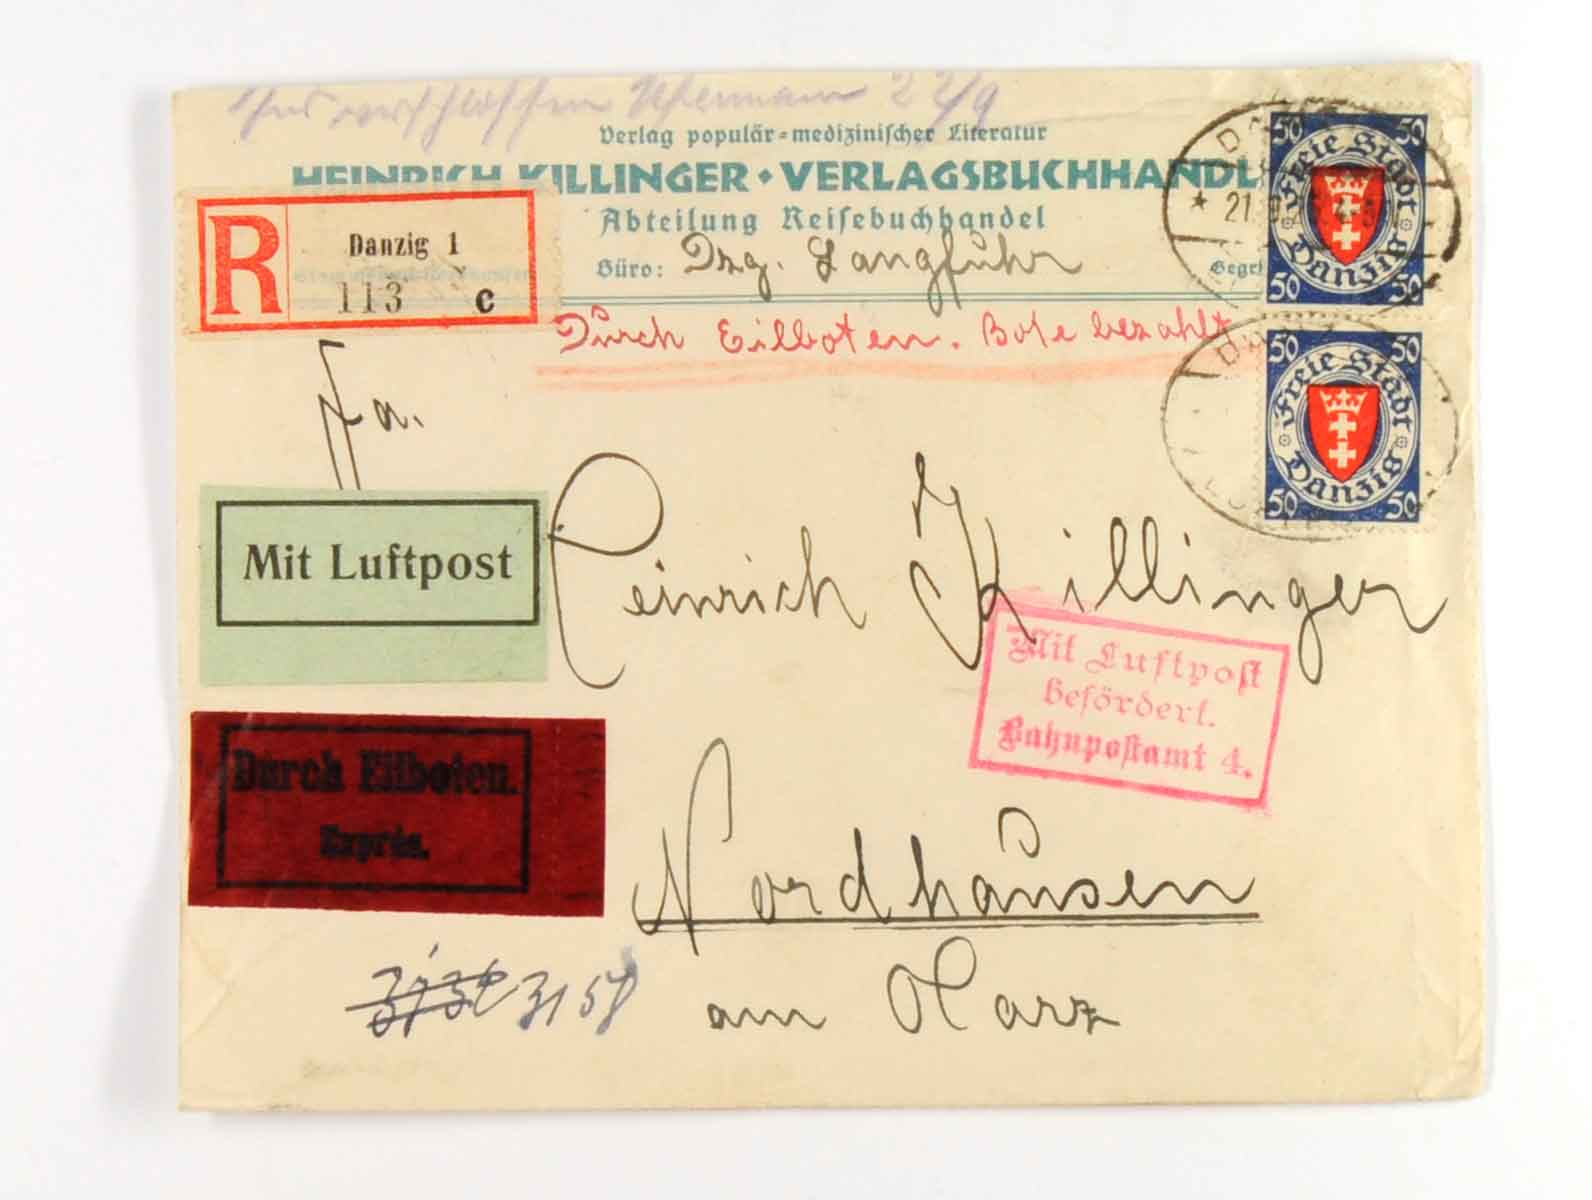 22/9
Verlag populär-medizinischer Literatur
HEINRICH KILLINGER • VERLAGSBUCHHANDL
Abteilung Reisebuchhandel
Büro: Dzg. Langfuhr
Gegr
R Danzig 1
113 c
Durch Eilboten. Bote bezahlt
50 50
Freie Stadt
Danzig
50 50
50 50
Freie Stadt
Danzig
50 50
Fa.
Mit Luftpost
Heinrich Killinger
Mit Luftpost
befördert.
Bahnpostamt 4.
Durch Eilboten.
Exprès.
Nordhausen
am Harz
3158